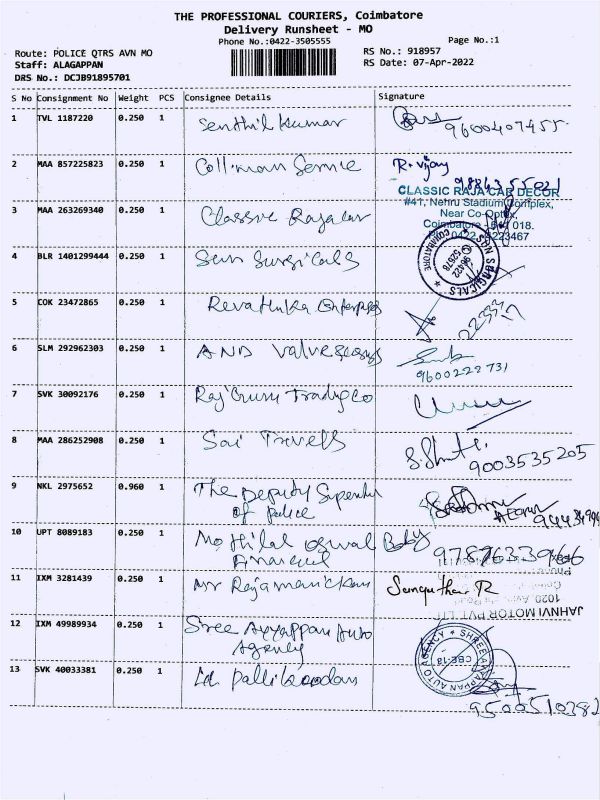 THE PROFESSIONAL COURIERS, Coimbatore
Delivery Runsheet - MO
Phone No.:0422-3505555
Page No.:1
Route: POLICE QTRS AVN MO
RS No.: 918957
Staff: ALAGAPPAN
RS Date: 07-Apr-2022
DRS No.: DCJB91895701
S No Consignment No Weight PCS Consignee Details Signature
1 TVL 1187220 0.250 1 Senthil Kumar 9600407455
2 MAA 857225823 0.250 1 R. vijay
9884355021
CLASSIC RAJA CAR DECOR
#41, Nehru Stadium Complex,
3 MAA 263269340 0.250 1 Classic Raja car Near Co-Optex,
Coimbatore 018.
4 BLR 1401299444 0.250 1 Surgicals SURGICALS COIMBATORE
5 COK 23472865 0.250 1 Enterprises
6 SLM 292962303 0.250 1 AND
9600222731
7 SVK 30092176 0.250 1 Trading Co
8 MAA 286252908 0.250 1 Sai Travels
9003535205
9 NKL 2975652 0.960 1 The Deputy
of police
10 UPT 8089183 0.250 1 Motilal Oswal Baby
Financial
11 IXM 3281439 0.250 1 Mr Rajamanickam
JAHNVI MOTOR PVT LTD
12 IXM 49989934 0.250 1 Sree Ayyappan Auto
Agency
SHREE AYYAPPAN AUTO AGENCY CBE-18
13 SVK 40033381 0.250 1
9500510382